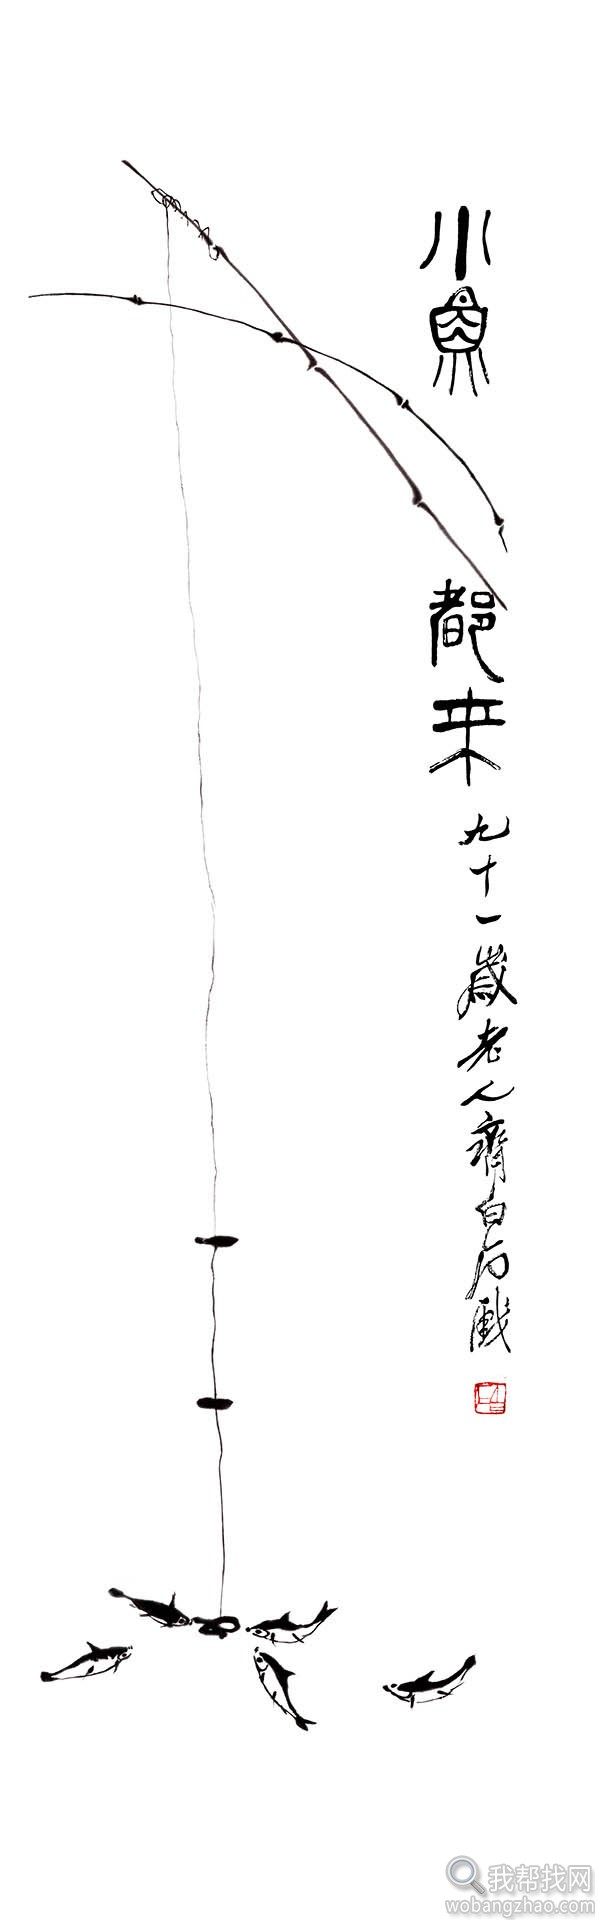 小魚都来
九十一歲老人齊白石戲
我帮找网
wobangzhao.com